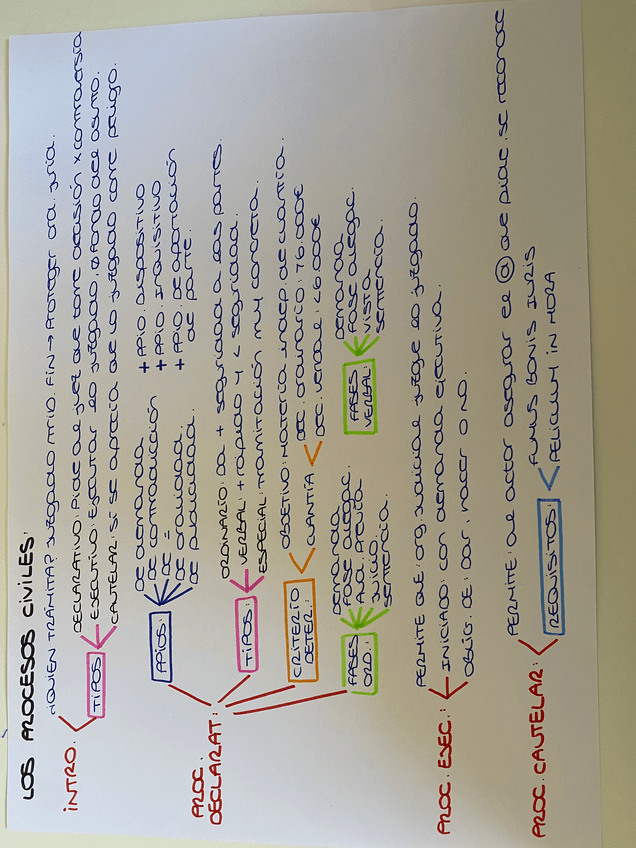 LOS PROCESOS CIVILES:
INTRO.
¿QUIEN TRAMITA? JUZGADO MTIO. FIN → PROTEGER ord. juria.
TIPOS
DECLARATIVO: Pide al juez que tome decisión x controversia
EJECUTIVO: Ejecutar lo juzgado. Ø fondo del asunto.
CAUTELAR: Si se aprecia que lo juzgado corre peligro.
PROC. DECLARAT:
PPIOS:
De demanda
De contradicción
De =
De oralidad
De publicidad
+ PPIO. DISPOSITIVO
+ PPIO. INQUISITIVO
+ PPIO. De aportación de parte.
TIPOS:
ORDINARIO: da + seguridad a las partes.
VERBAL: + rápido y < seguridad.
ESPECIAL: tramitación muy concreta.
CRITERIO DETER.:
OBJETIVO: materia indep. de cuantía.
CUANTÍA
Dec. ordinario: >6.000€
Dec. verbal: <6.000€
FASES ORD.:
Demanda
Fase alegac.
Aud. previa
Juicio.
Sentencia.
FASES VERBAL:
Demanda
Fase alegac.
Vista
Sentencia.
PROC. EJEC.:
PERMITE que org. judicial juzgue lo juzgado.
INICIADO: con demanda ejecutiva.
OBLIG. DE: Dar, hacer o no.
PROC. CAUTELAR:
PERMITE: al actor asegurar el @ que pide, se reconoce
REQUISITOS:
FUMUS BONIS IURIS
PELICULUM IN MORA